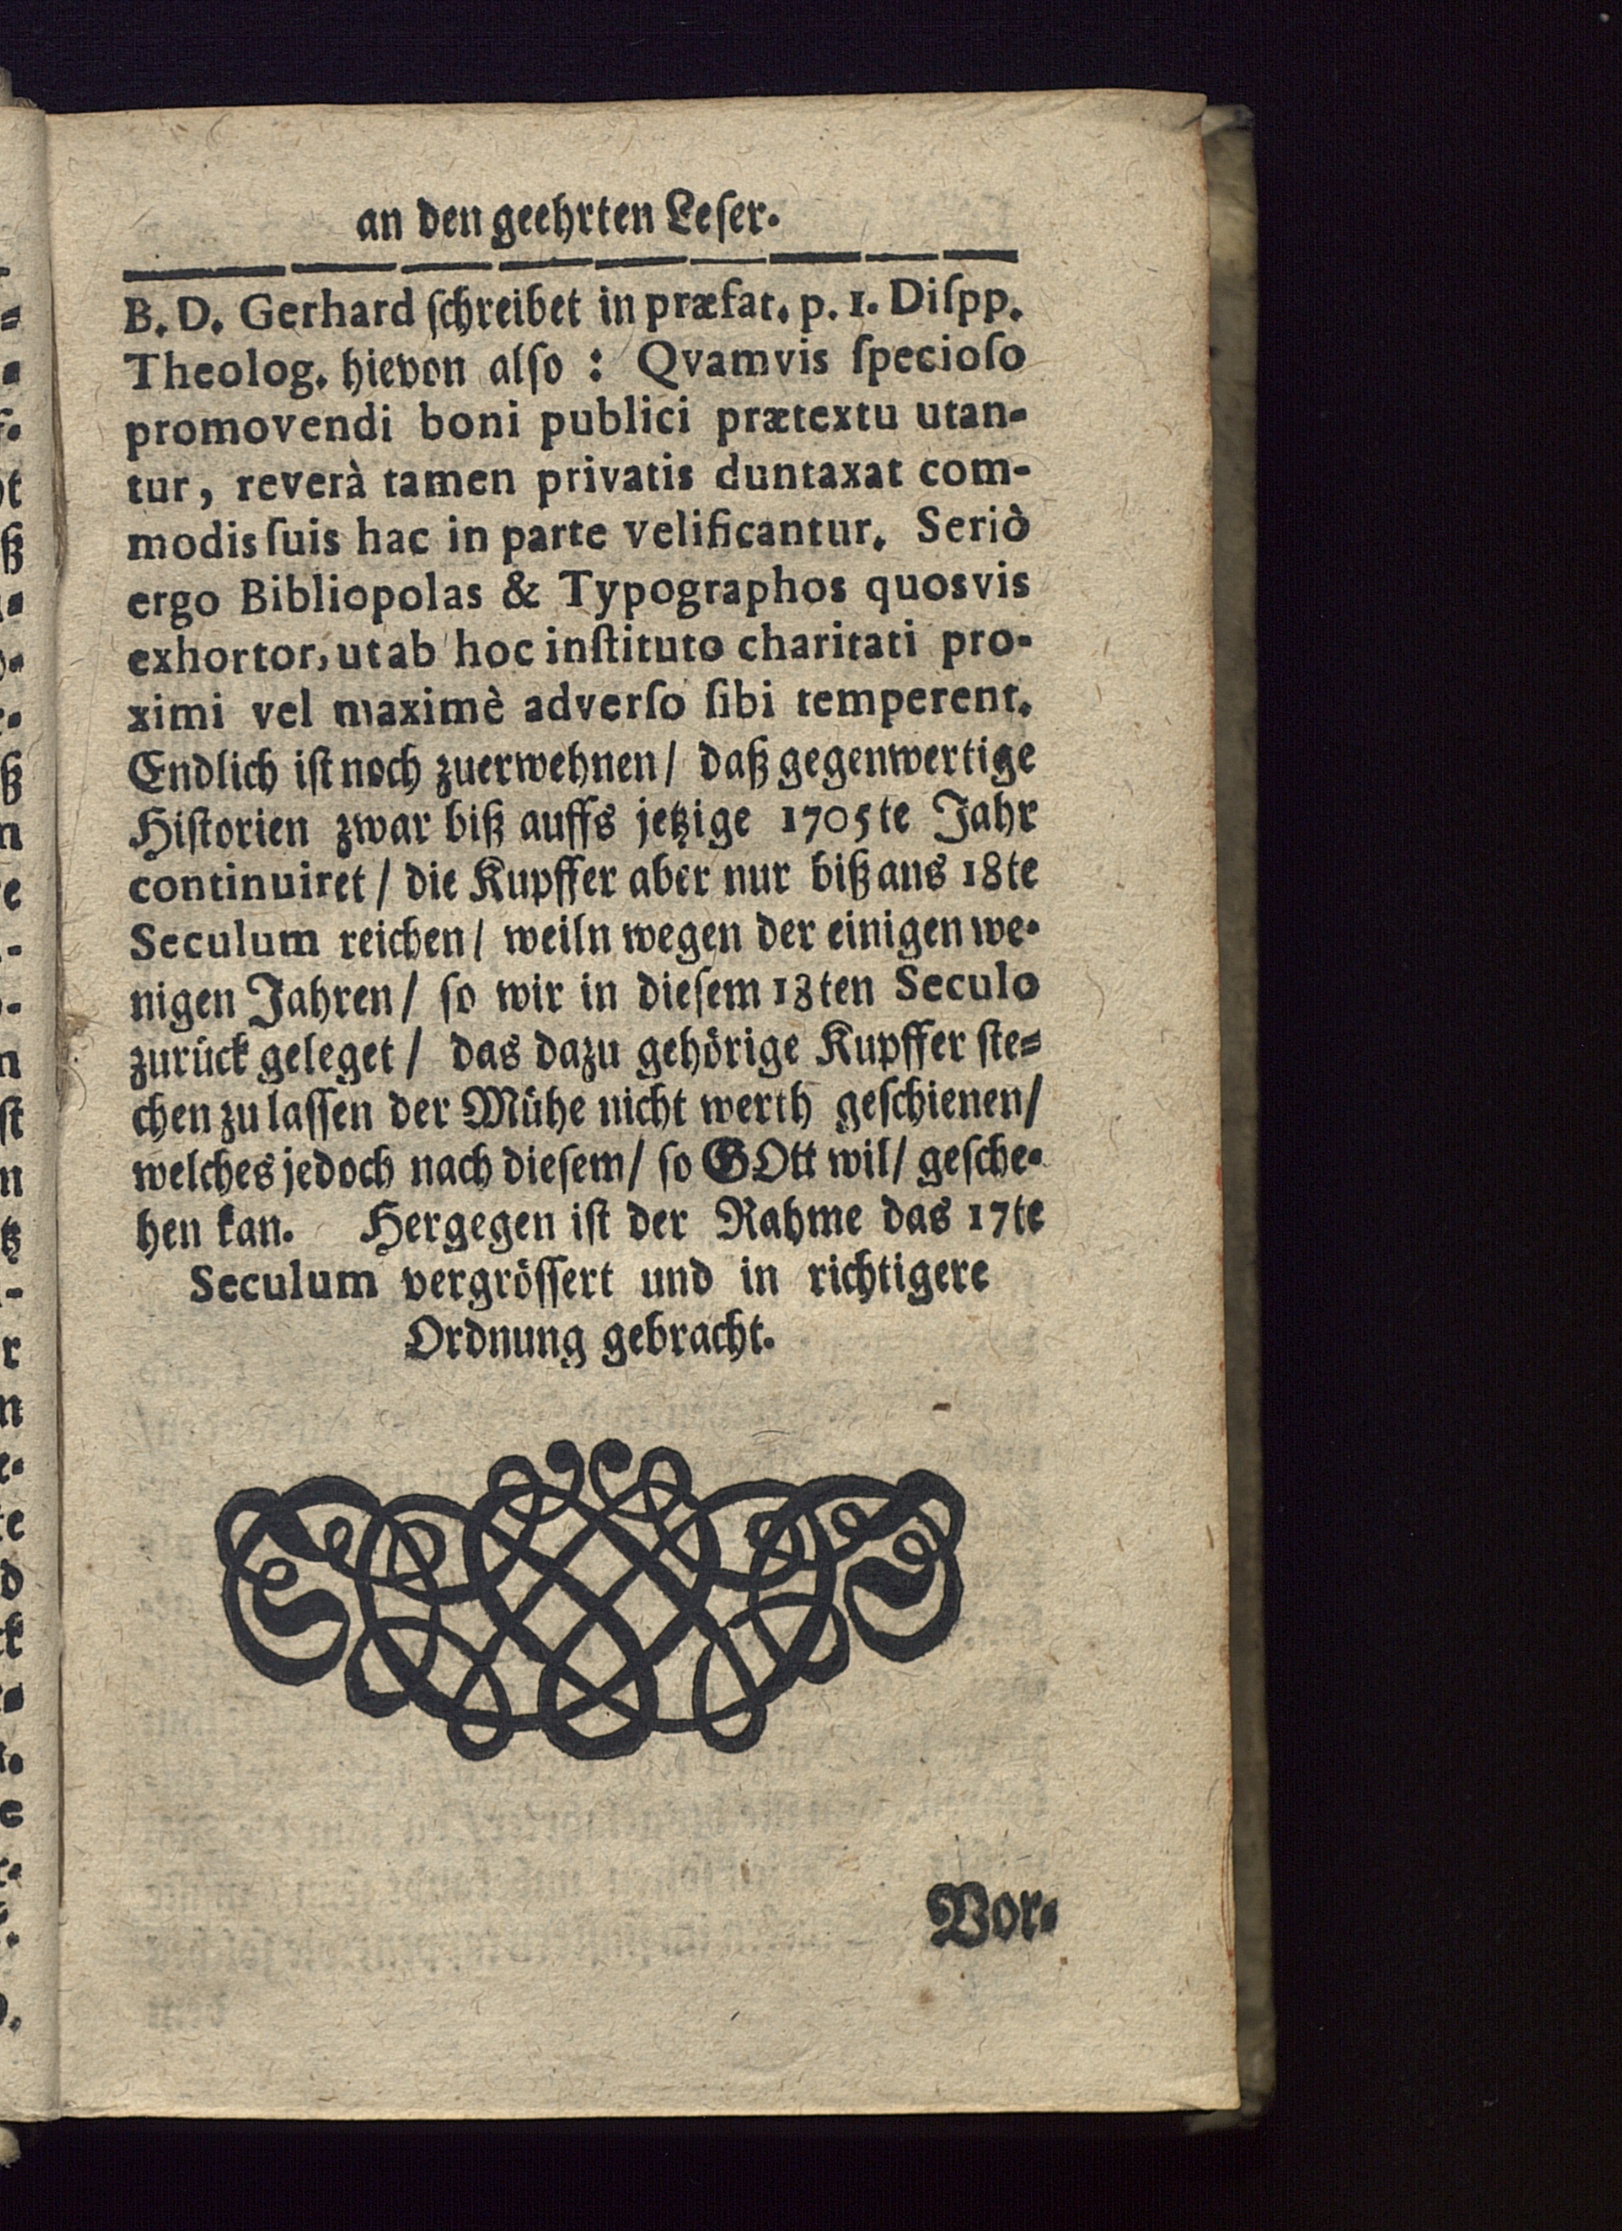 an den geehrten Leſer.
B. D. Gerhard ſchreibet in præfat. p. 1. Diſpp.
Theolog. hievon alſo : Qvamvis ſpecioſo
promovendi boni publici prætextu utan-
tur, reverà tamen privatis duntaxat com-
modis ſuis hac in parte velificantur. Seriò
ergo Bibliopolas & Typographos quosvis
exhortor, ut ab hoc inſtituto charitati pro-
ximi vel maximè adverſo ſibi temperent.
Endlich iſt noch zuerwehnen / daß gegenwertige
Hiſtorien zwar biß auffs jetzige 1705te Jahr
continuiret / die Kupffer aber nur biß ans 18te
Seculum reichen / weiln wegen der einigen we-
nigen Jahren / ſo wir in dieſem 18ten Seculo
zurück geleget / das dazu gehörige Kupffer ſte-
chen zu laſſen der Mühe nicht werth geſchienen /
welches jedoch nach dieſem / ſo GOtt wil / geſche-
hen kan. Hergegen iſt der Rahme das 17te
Seculum vergröſſert und in richtigere
Ordnung gebracht.
Vor-